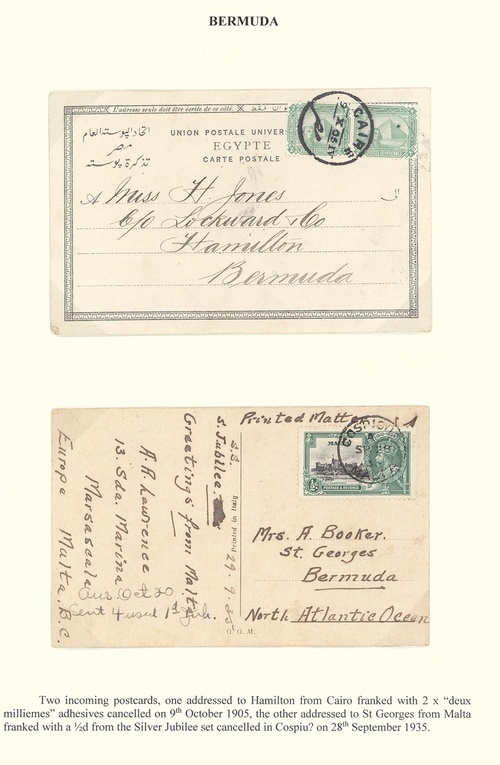 BERMUDA
L'adresse seule doit être écrite de ce côté.
اتحاد البوستة العام
مصر
تذكرة بوستة
UNION POSTALE UNIVER
EGYPTE
CARTE POSTALE
CAIRO
A Miss H Jones
c/o Lockward & Co
Hamilton
Bermuda
الى
Printed Matter
MAL
POSTAGE & REVENUE
½d
Mrs. A. Booker.
St. Georges
Bermuda
North Atlantic Ocean
Printed in Italy
29.9.35
S.S.
S. Jubilee.
Greetings from Malta
A. R. Lawrence
13. Sda. Marina
Marsascala
Europe Malta. B.C.
Ans Oct 20
Sent 4 used 1d Jub.
G. M.
Two incoming postcards, one addressed to Hamilton from Cairo franked with 2 x “deux
milliemes” adhesives cancelled on 9th October 1905, the other addressed to St Georges from Malta
franked with a ½d from the Silver Jubilee set cancelled in Cospiu? on 28th September 1935.